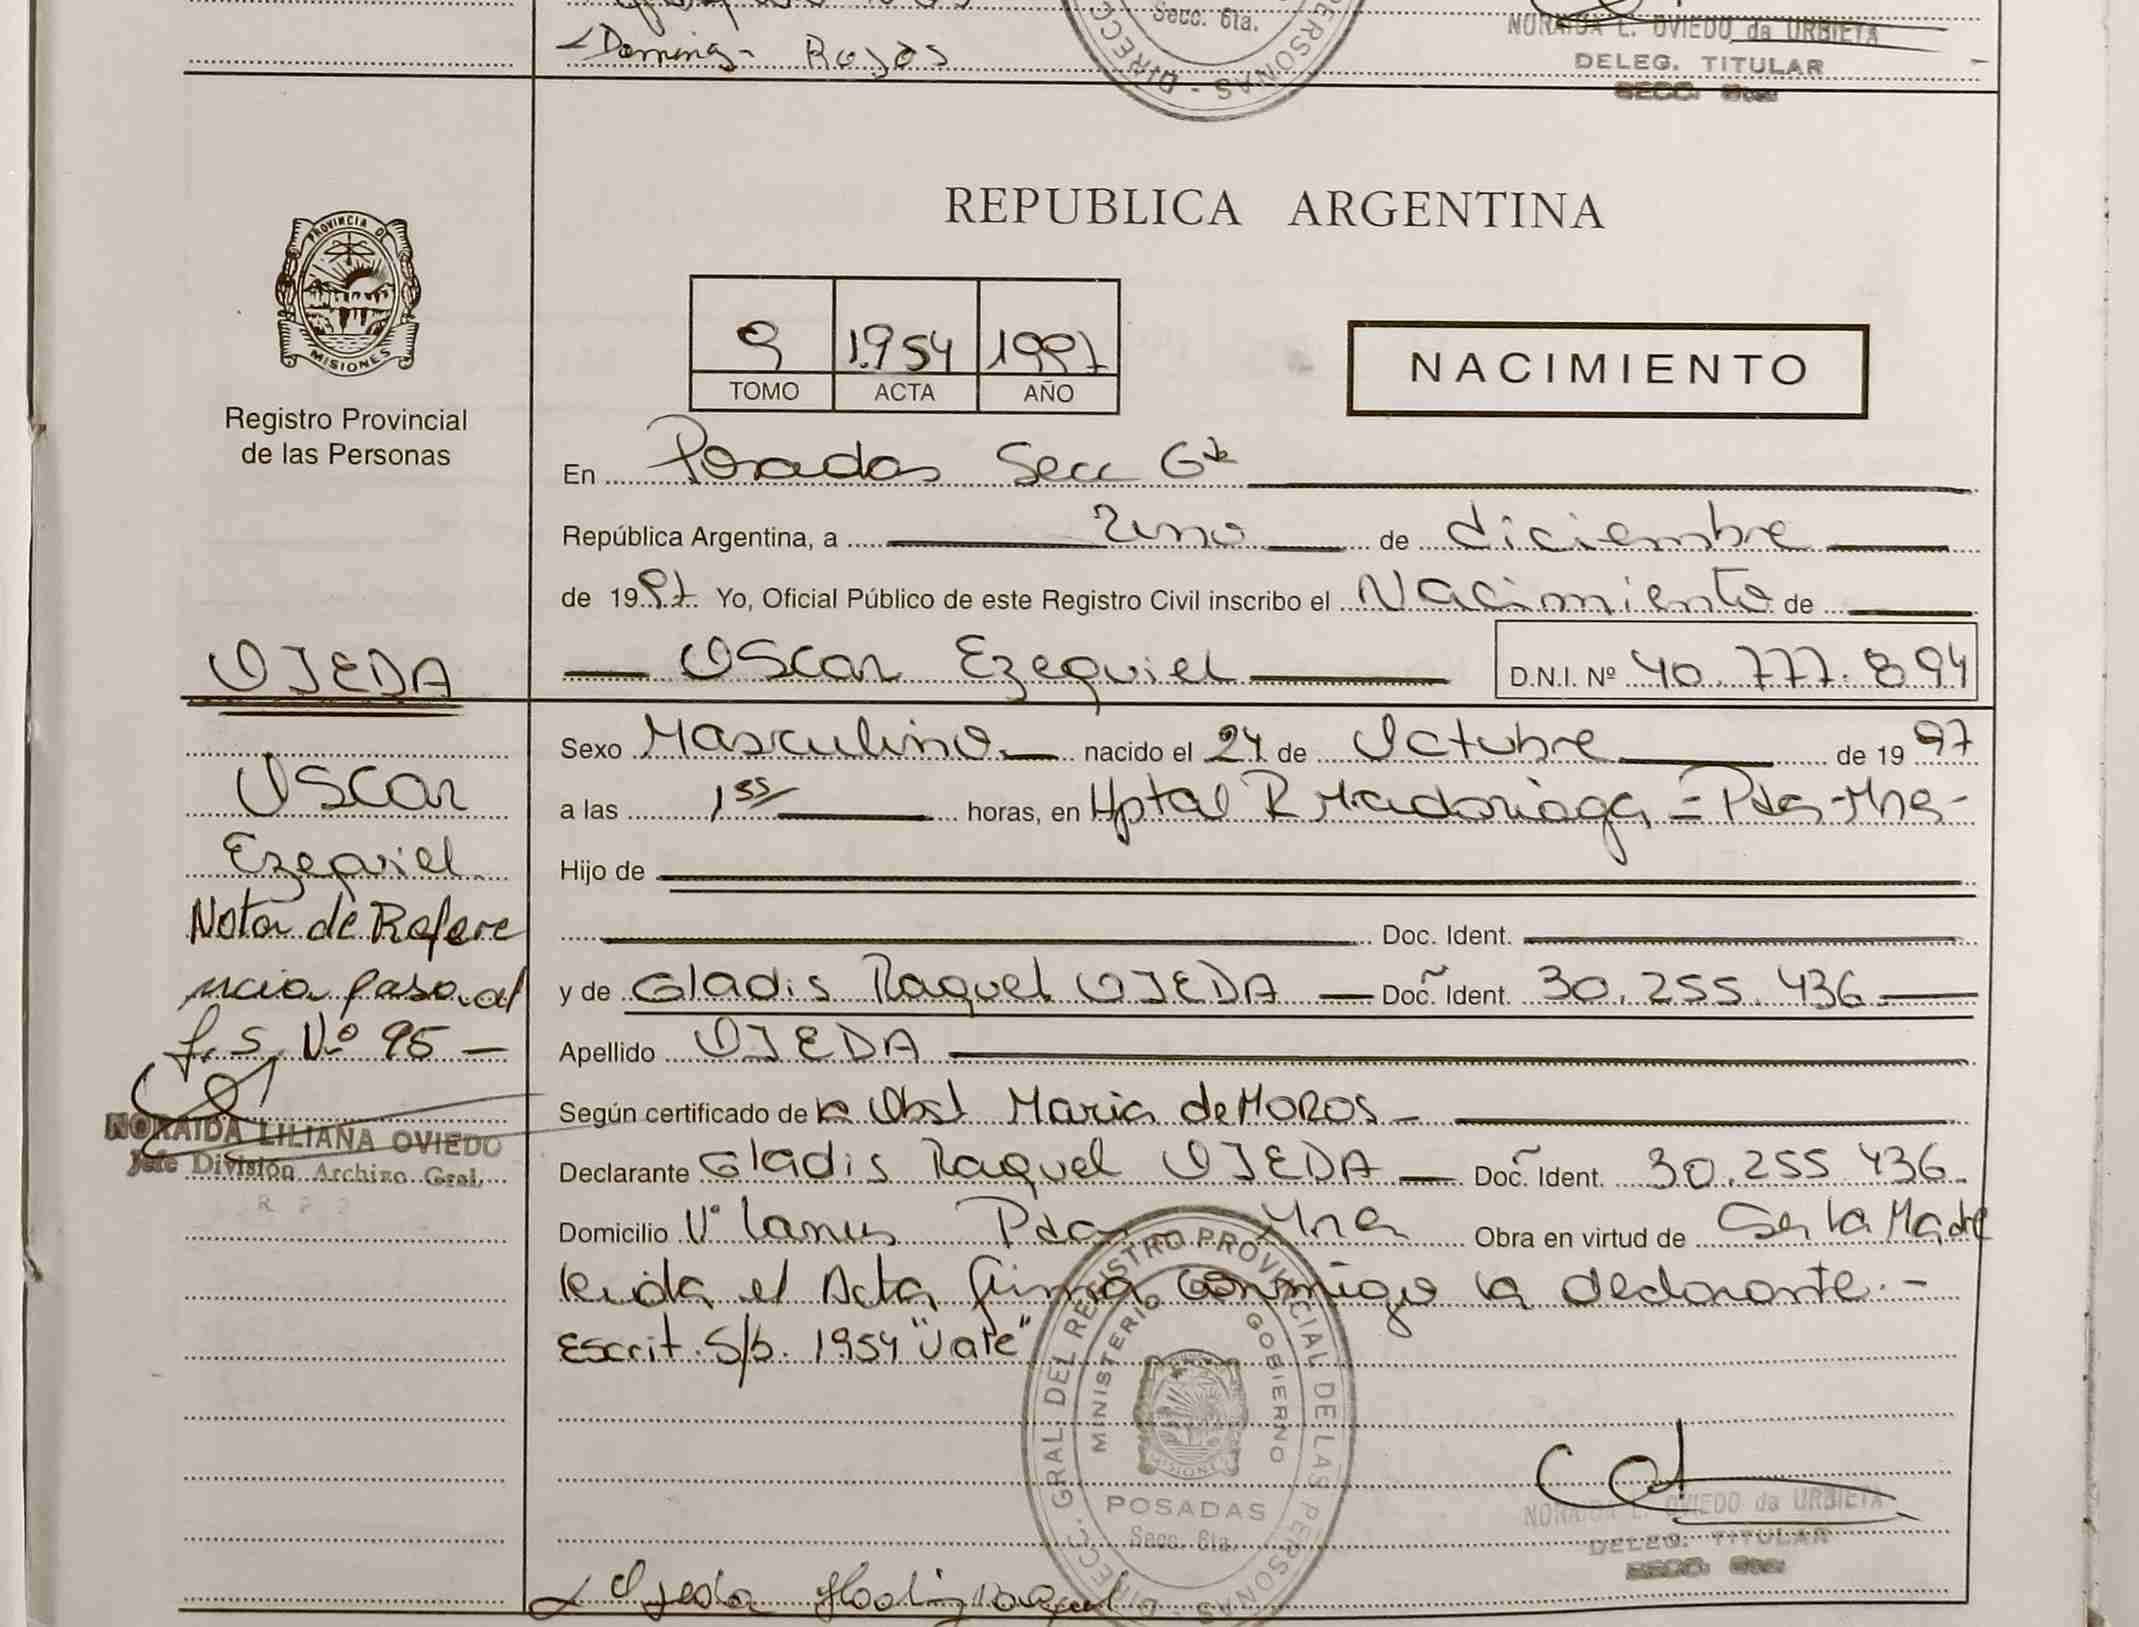 Secc. 6ta.
PERSONAS - DIRECC
Rojas
NORAIDA L. OVIEDO da URBIETA
DELEG. TITULAR
SECC. 6ta.
PROVINCIA DE
MISIONES
Registro Provincial
de las Personas
REPUBLICA ARGENTINA
9 1.954 1997
TOMO ACTA AÑO
NACIMIENTO
En Posadas Secc 6ta
República Argentina, a uno de diciembre
de 1997 Yo, Oficial Público de este Registro Civil inscribo el Nacimiento de
OJEDA
Oscar Ezequiel D.N.I. Nº 40.777.894
Sexo Masculino nacido el 24 de Octubre de 1997
Oscar
a las 1 55 horas, en Hptal R Madariaga = Pdas - Mnes -
Ezequiel
Hijo de
Nota de Refere
Doc. Ident.
ncia pasa al
y de Gladis Raquel OJEDA Doc. Ident. 30.255.436
f. s. Nº 95
Apellido OJEDA
Según certificado de la Obst Maria de MOROS
NORAIDA LILIANA OVIEDO
Jefe División Archivo Gral.
R P P
Declarante Gladis Raquel OJEDA Doc. Ident. 30.255.436.
Domicilio Vº Lanus Pdas Mnes Obra en virtud de Ser la Madre
leida el Acta firma conmigo la declarante. -
Escrit. S/b. 1954 "Vale"
DIRECC. GRAL. DEL REGISTRO PROVINCIAL DE LAS PERSONAS
MINISTERIO GOBIERNO
MISIONES
POSADAS
Secc. 6ta.
NORAIDA L. OVIEDO da URBIETA
DELEG. TITULAR
SECC. 6ta.
Ojeda Raquel